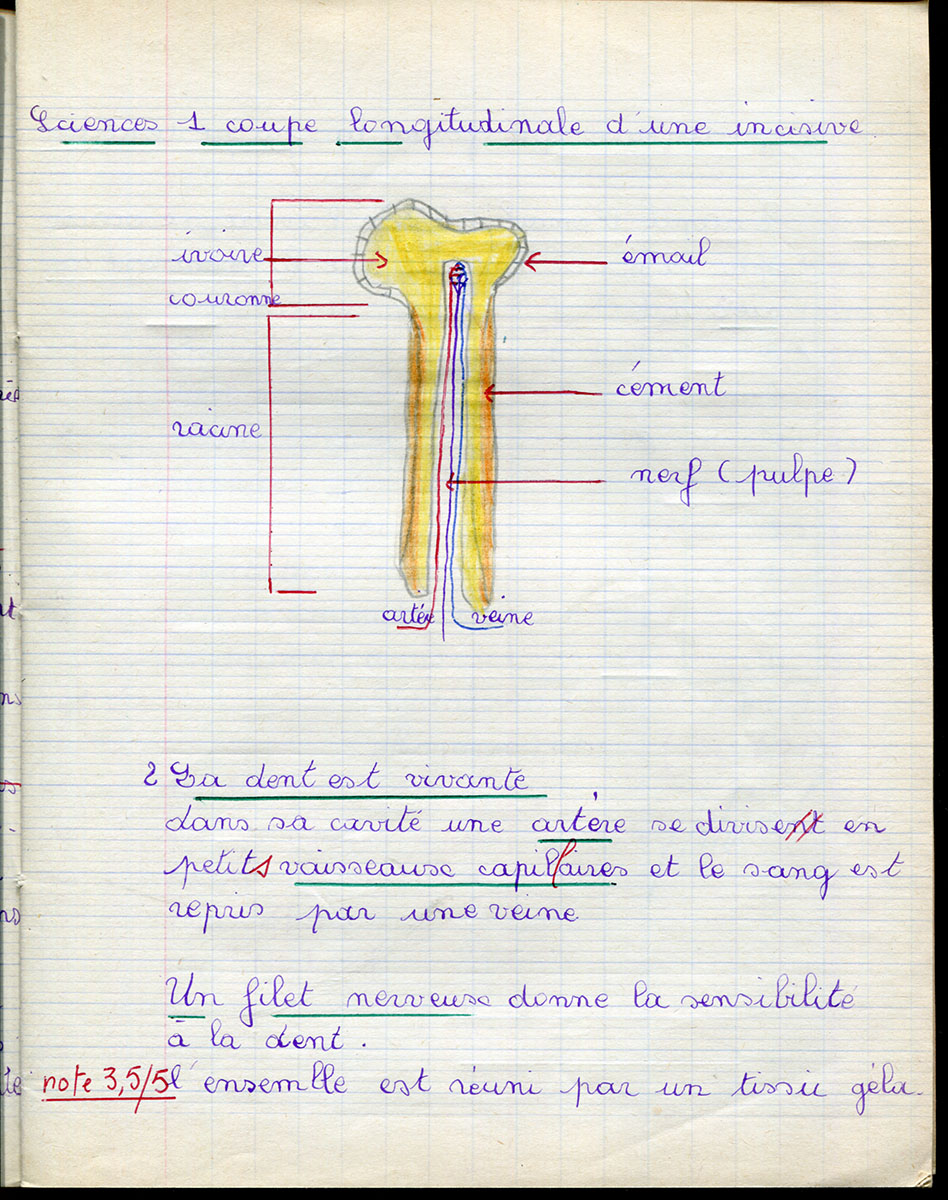 Sciences 1 coupe longitudinale d'une incisive
ivoire
émail
couronne
cément
racine
nerf (pulpe)
artère
veine
2 La dent est vivante
dans sa cavité une artère se divise en
petits vaisseaux capillaires et le sang est
repris par une veine
Un filet nerveux donne la sensibilité
à la dent.
note 3,5/5 l'ensemble est réuni par un tissu géla-